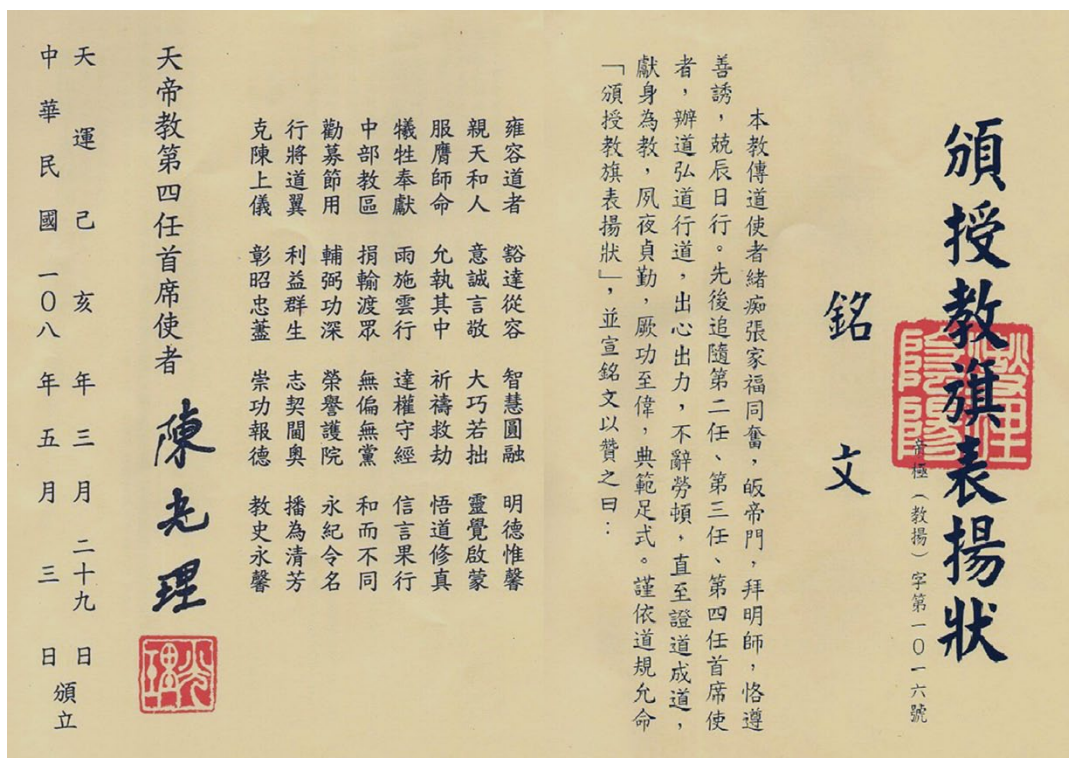 頒授教旗表揚狀
帝極（教揚）字第一０一六號
銘文
本教傳道使者緒痴張家福同奮，皈帝門，拜明師，恪遵
善誘，兢辰日行。先後追隨第二任、第三任、第四任首席使
者，辦道弘道行道，出心出力，不辭勞頓，直至證道成道，
獻身為教，夙夜貞勤，厥功至偉，典範足式。謹依道規允命
「頒授教旗表揚狀」，並宣銘文以贊之曰：
雍容道者　豁達從容　智慧圓融　明德惟馨
親天和人　意誠言敬　大巧若拙　靈覺啟蒙
服膺師命　允執其中　祈禱救劫　悟道修真
犧牲奉獻　雨施雲行　達權守經　信言果行
中部教區　捐輸渡眾　無偏無黨　和而不同
勸募節用　輔弼功深　榮譽護院　永紀令名
行將道翼　利益群生　志契閫奧　播為清芳
克陳上儀　彰昭忠藎　崇功報德　教史永馨
天帝教第四任首席使者　陳光理
光理
天運己亥年三月二十九日
中華民國一０八年五月三日
頒立